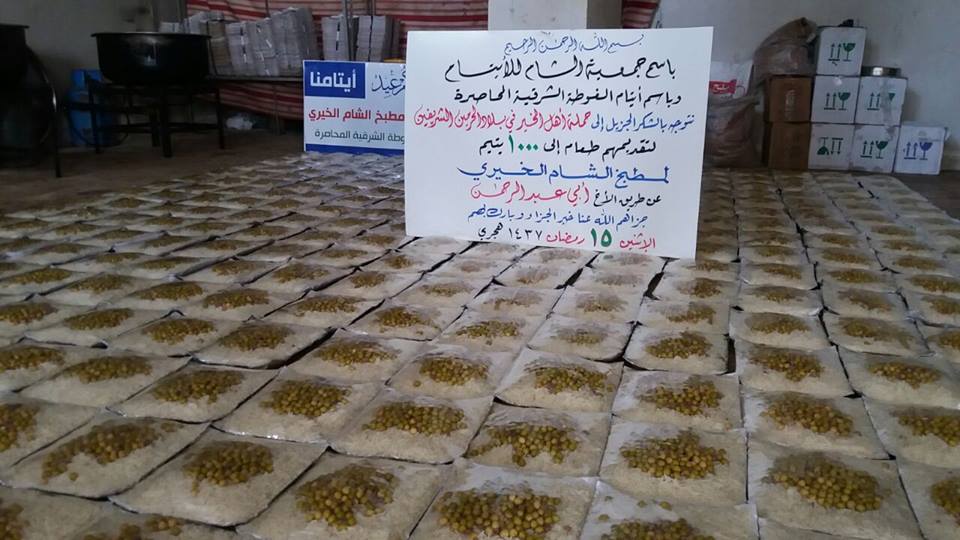 بسم الله الرحمن الرحيم
باسم جمعية الشام للأيتام
وباسم أيتام الغوطة الشرقية المحاصرة
نتوجه بالشكر الجزيل إلى حملة أهل الخير في بلاد الحرمين الشريفين
لتقديمهم طعام إلى ١٠٠٠ يتيم
لمطبخ الشام الخيري
عن طريق الأخ أبي عبد الرحمن
جزاهم الله عنا خير الجزاء وبارك بهم
الإثنين ١٥ رمضان ١٤٣٧ هجري
أيتامنا
مطبخ الشام الخيري
وطة الشرقية المحاصرة